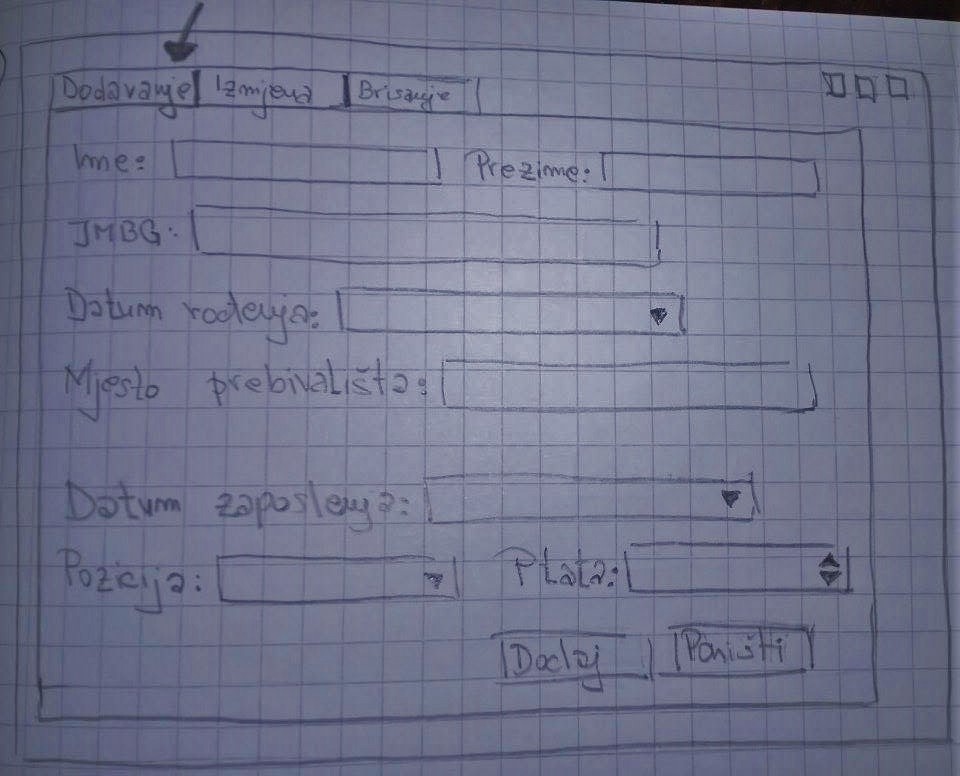 Dodavanje Izmjena Brisanje
Ime: Prezime:
JMBG:
Datum rođenja:
Mjesto prebivališta:
Datum zaposlenja:
Pozicija: Plata:
Dodaj Poništi